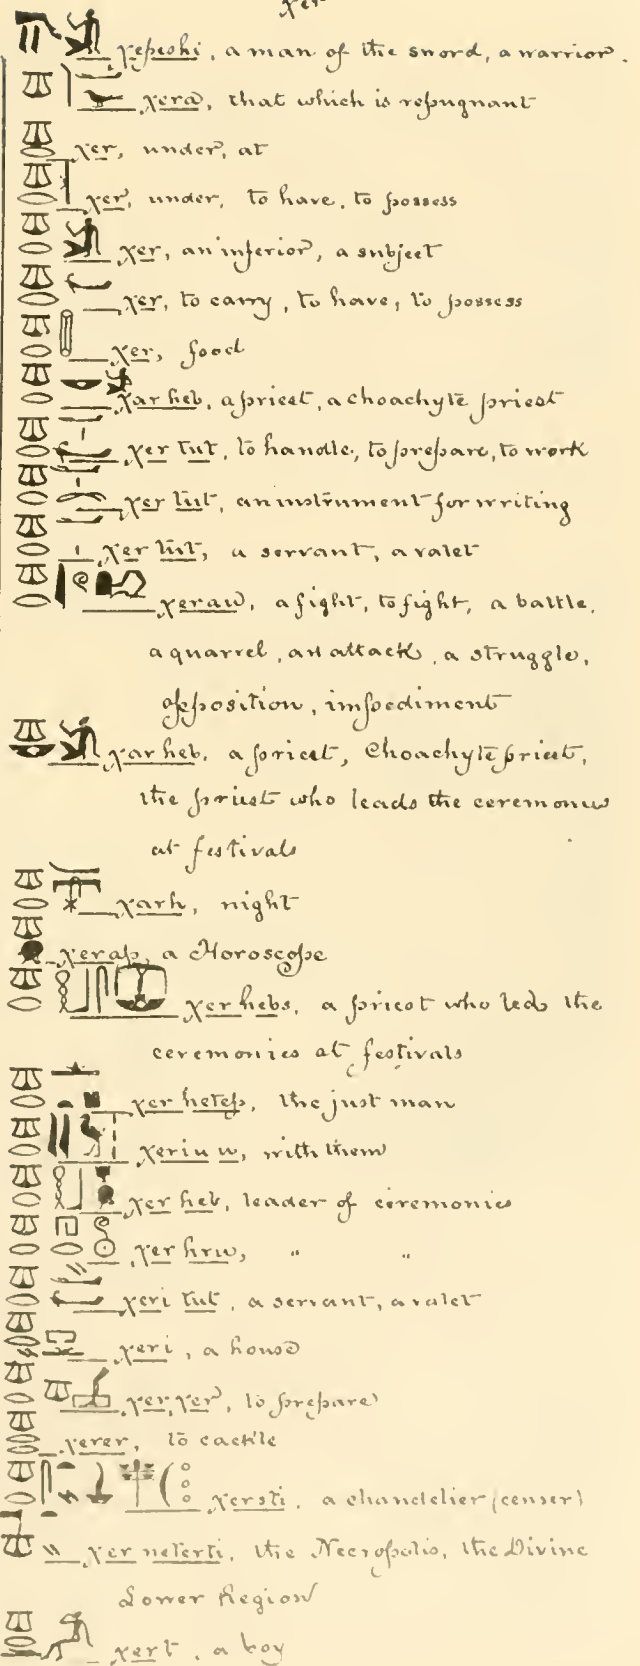 χer
χepeshi, a man of the sword, a warrior.
χera, that which is repugnant
χer, under, at
χer, under, to have, to possess
χer, an inferior, a subject
χer, to carry, to have, to possess
χer, food
χar heb, a priest, a choachyte priest
χer tut, to handle, to prepare, to work
χer tut, an instrument for writing
χer tut, a servant, a valet
χeraw, a fight, to fight, a battle,
a quarrel, an attack, a struggle,
opposition, impediment
χar heb, a priest, Choachyte priest,
the priest who leads the ceremonies
at festivals
χarh, night
χerap, a Horoscope
χer hebs, a priest who led the
ceremonies at festivals
χer hetep, the just man
χeriu w, with them
χer heb, leader of ceremonies
χer hrw, " "
χeri tut, a servant, a valet
χeri, a house
χer, χer, to prepare
χerer, to cackle
χersti, a chandelier (censer)
χer neterti, the Necropolis, the Divine
Lower Region
χert, a boy